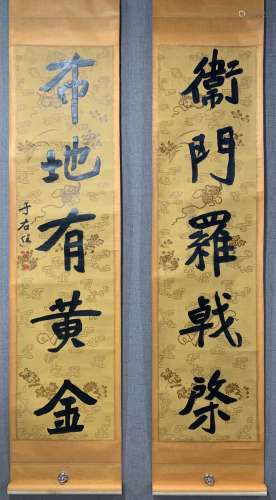 衞門羅戟棨
布地有黄金
于右任